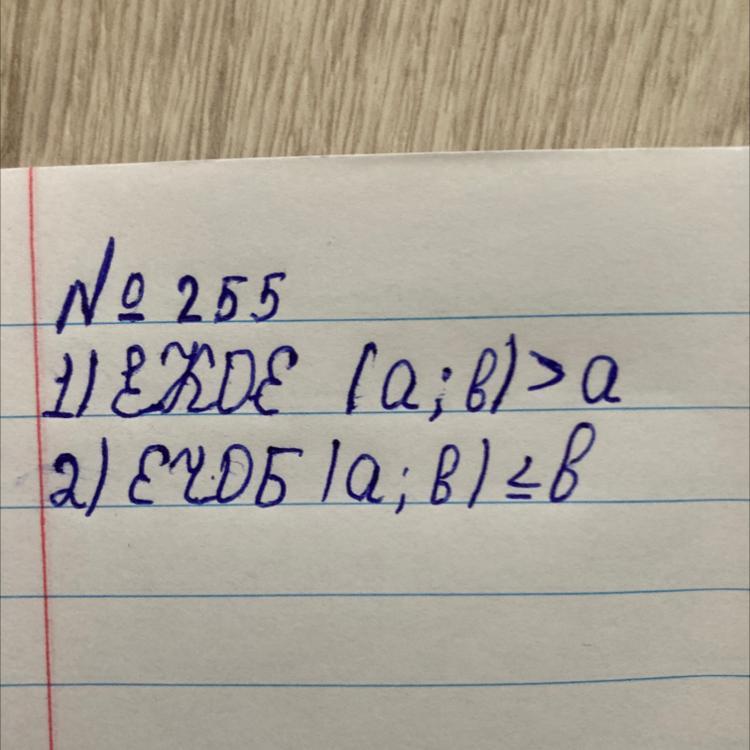 № 255
1) ЕКОЕ (а; в) > а
2) ЕЧОБ (а; в) ≤ в